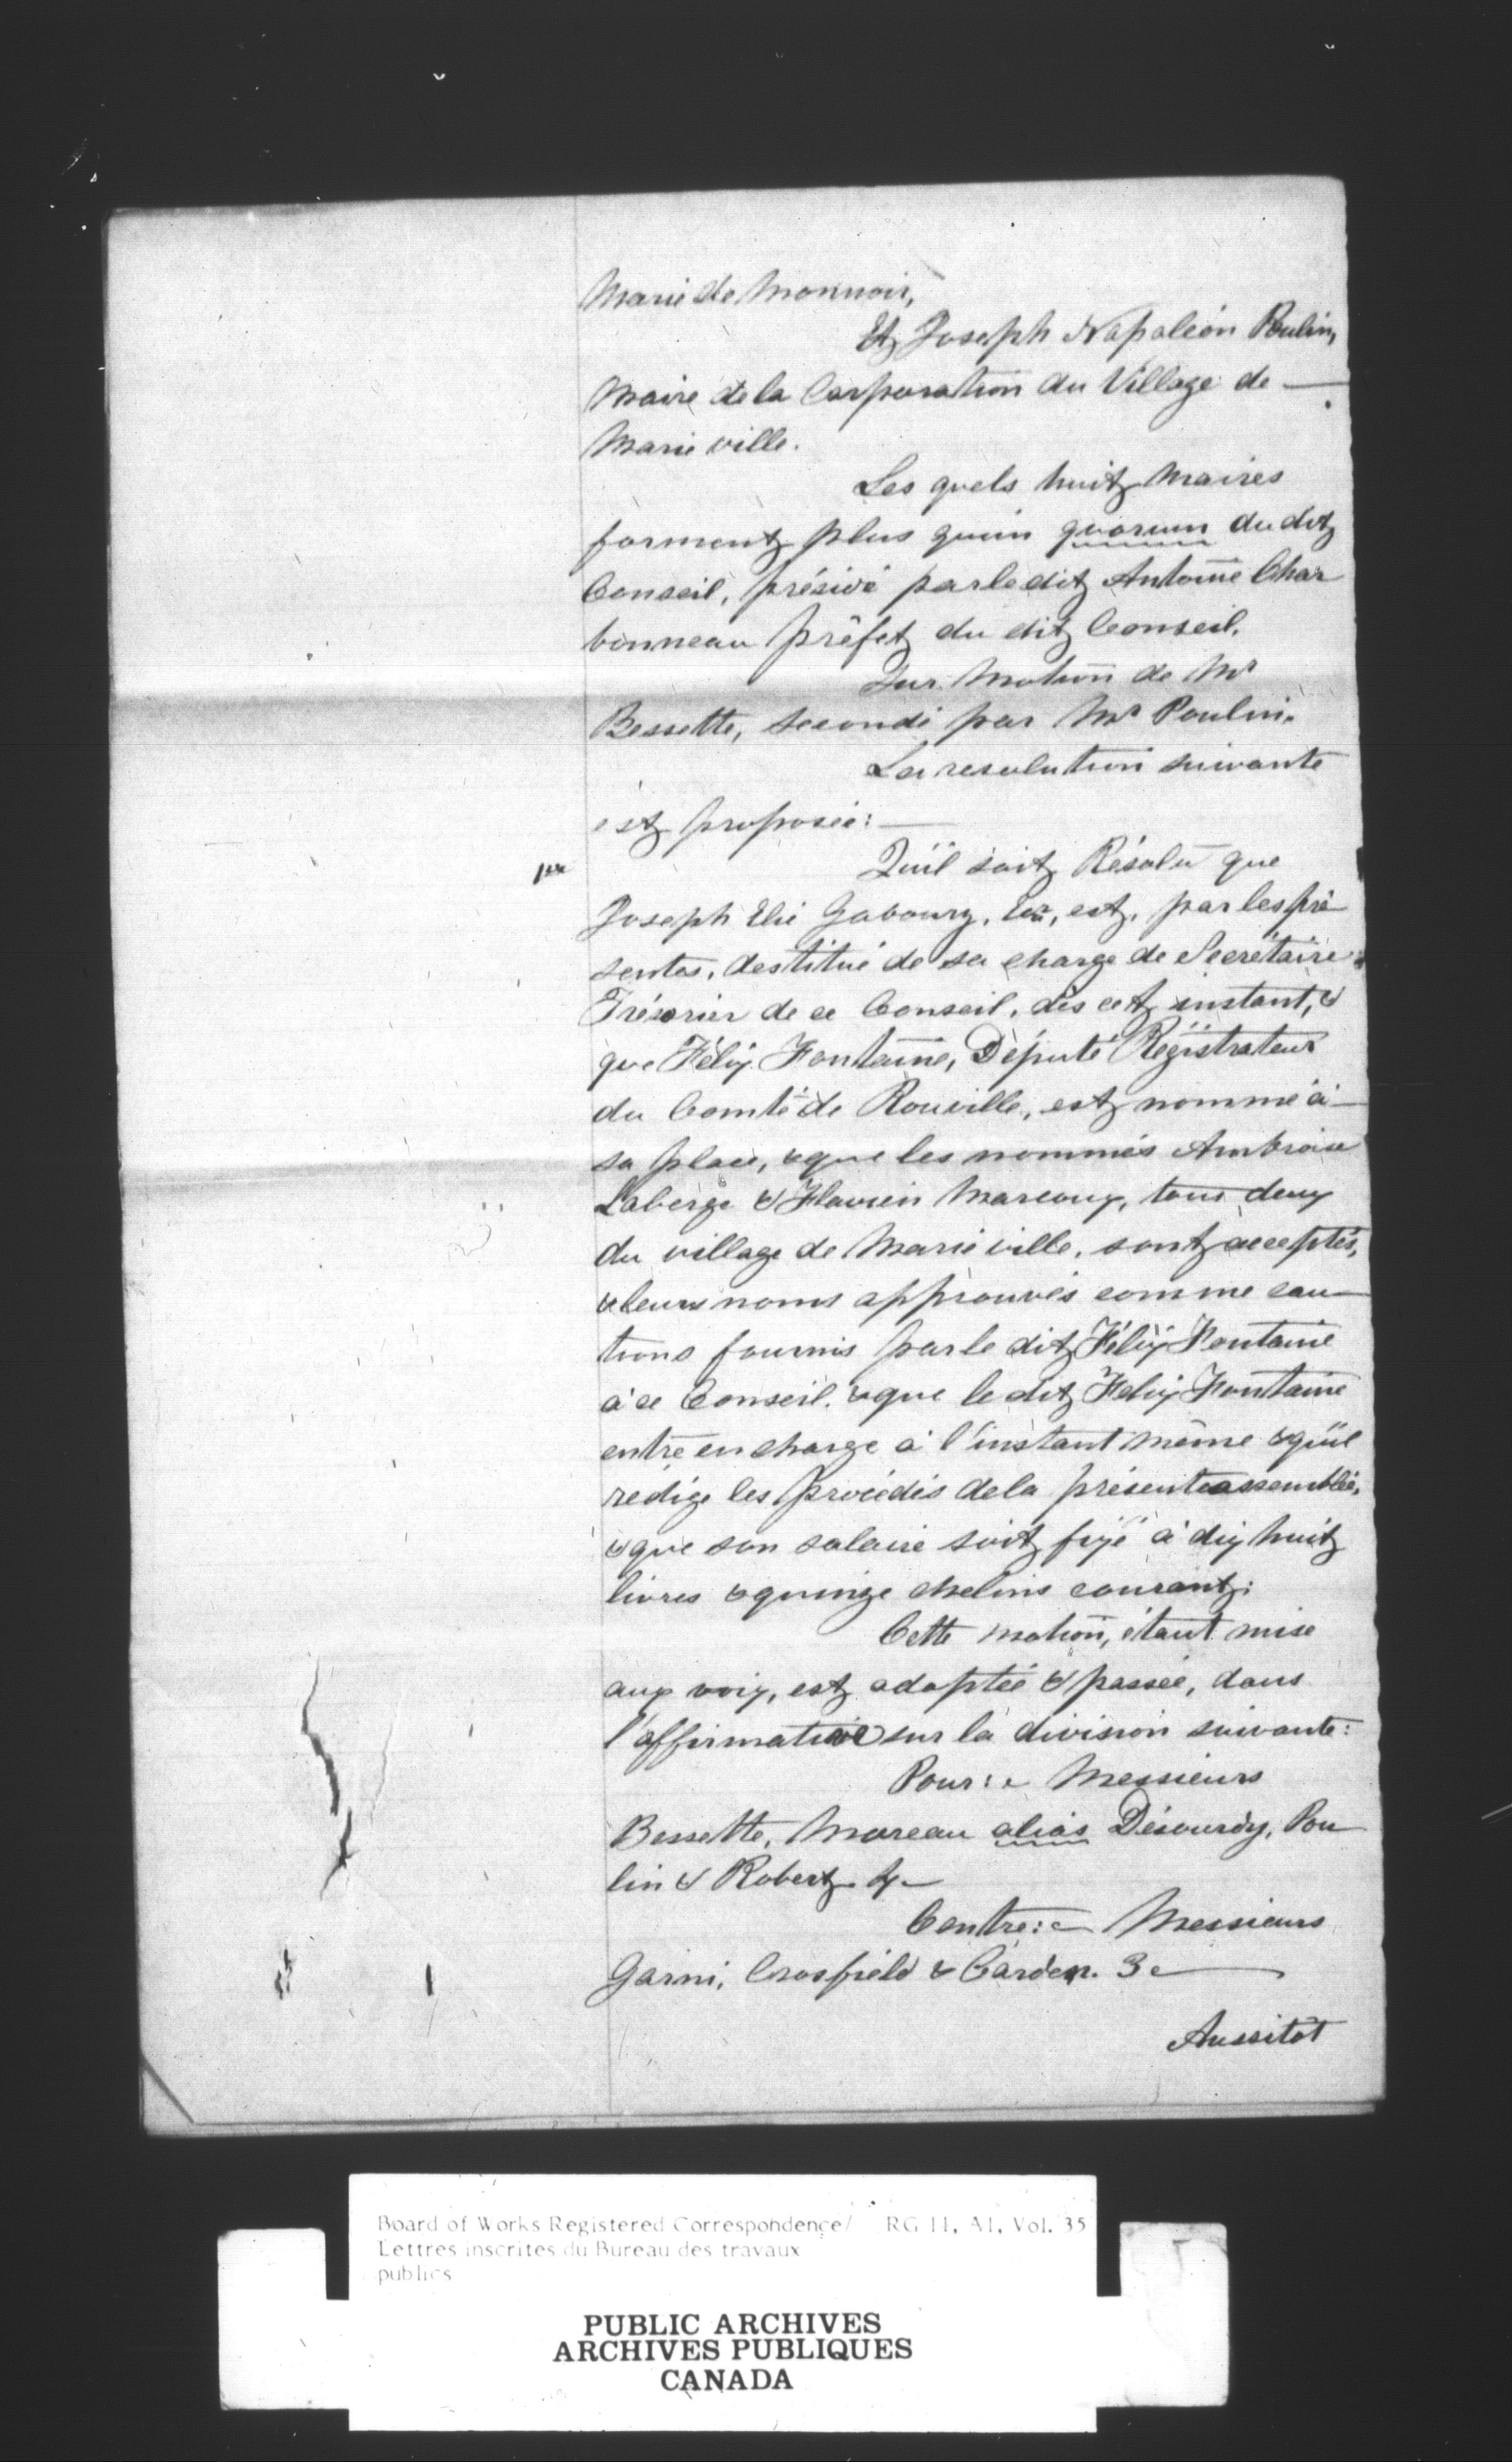 Marie de Monnoir,
Et Joseph Napoléon Poulin,
Maire de la Corporation du Village de —
Marieville.
Les quels huit Maires
forment plus qu'un quorum du dit
Conseil, présidé par le dit Antoine Char
bonneau préfet du dit Conseil.
Sur Motion de Mr
Bessette, secondé par Mr Poulin.
La resolution suivante
est proposée: —
Qu'il soit Résolu que
Joseph Elie Gaboury, Ecr, est, par les pré
sentes, destitué de sa charge de Secrétaire
Trésorier de ce Conseil, dès cet instant, &
que Félix Fontaine, Député Régistrateur
du Comté de Rouville, est nommé à —
sa place, & que les nommés Ambroise
Laberge & Flavien Marcoux, tous deux
du village de Marieville, sont acceptés,
& leurs noms approuvés comme cau—
tions fournis par le dit Félix Fontaine
à ce Conseil, & que le dit Felix Fontaine
entre en charge à l'instant même & qu'il
rédige les procédés de la présente assemblée,
& que son salaire soit fixé à dix huit
livres & quinze chelins courant;
Cette motion, étant mise
aux voix, est adoptée & passée, dans
l'affirmative sur la division suivante:
Pour: Messieurs
Bessette, Moreau alias Désourdy, Pou
lin & Robert. 4 —
Contre: Messieurs
Garni, Crosfield & Carden. 3 —
Aussitôt
Board of Works Registered Correspondence/ RG 11, A1, Vol. 35
Lettres inscrites du Bureau des travaux
publics
PUBLIC ARCHIVES
ARCHIVES PUBLIQUES
CANADA